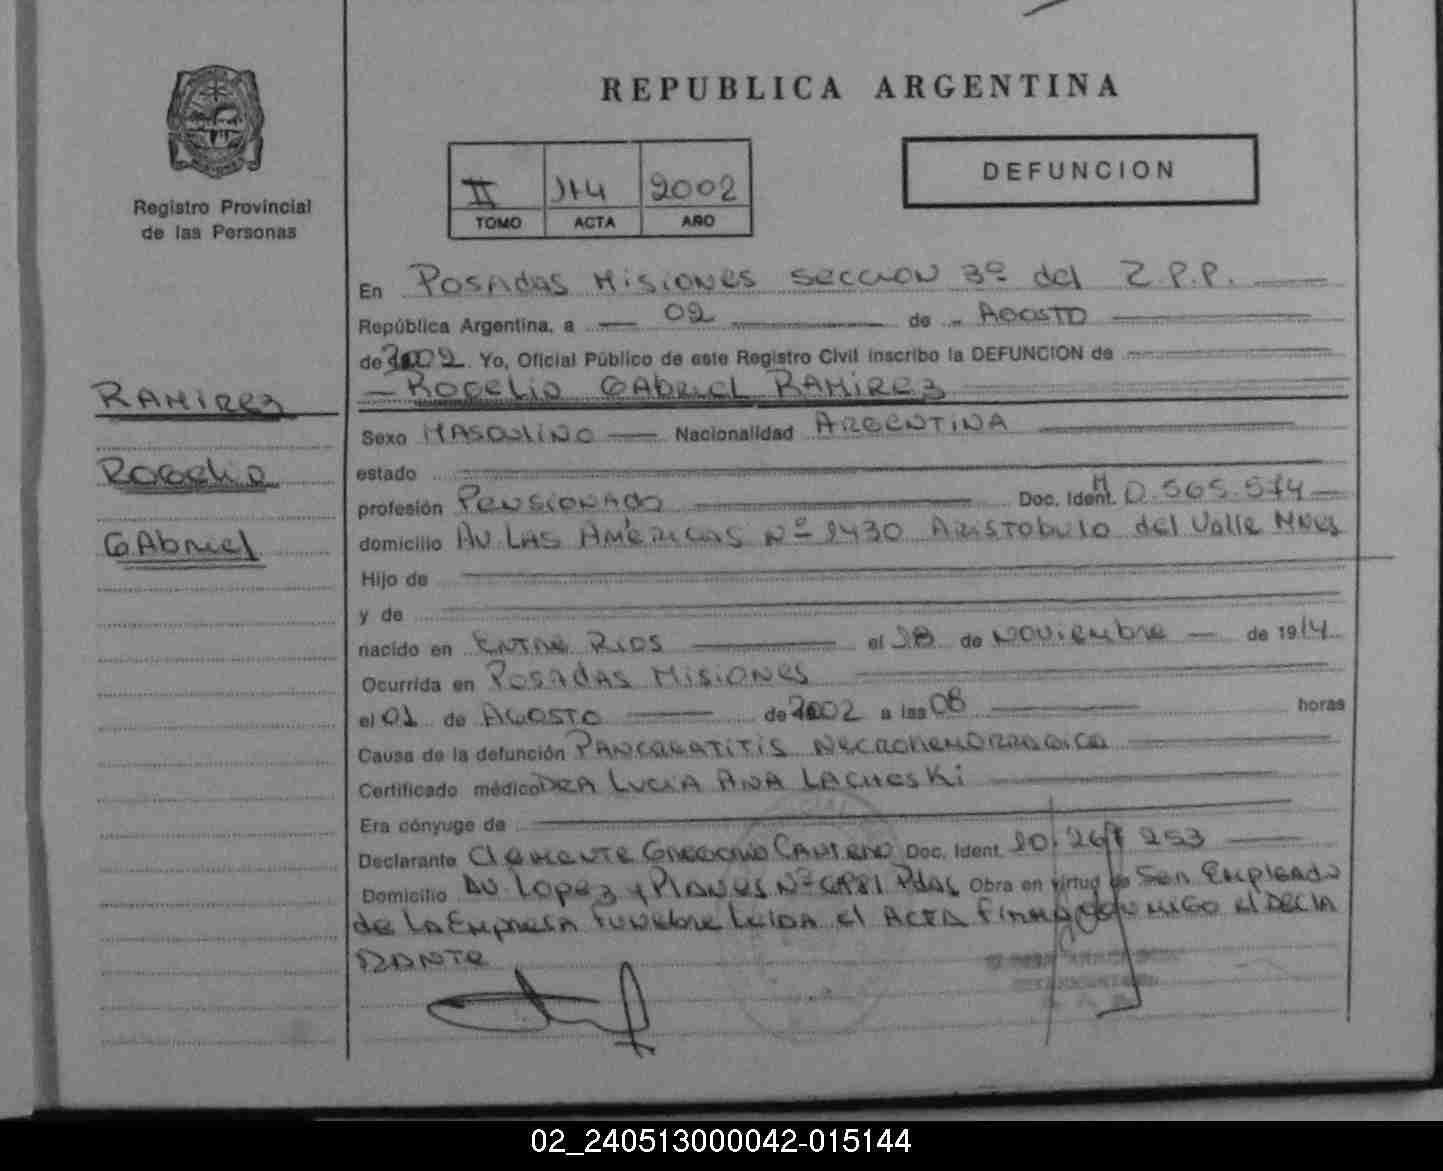 REPUBLICA ARGENTINA
DEFUNCION
II 2002
TOMO ACTA AÑO
Registro Provincial
de las Personas
En Posadas Misiones seccion 3º del Z.P.P.
República Argentina, a 02 de Agosto
de 2002. Yo, Oficial Público de este Registro Civil inscribo la DEFUNCION de
Rogelio Gabriel Ramirez
Ramirez
Rogelio
Gabriel
Sexo Masculino Nacionalidad Argentina
estado
profesión Pensionado Doc. Ident. M 0.565.574
domicilio Av. Las Américas Nº 1430 Aristobulo del Valle Mnes
Hijo de
y de
nacido en Entre Rios el 18 de Noviembre de 1914
Ocurrida en Posadas Misiones
el 01 de Agosto de 2002 a las 08 horas
Causa de la defunción Pancreatitis Necrohemorragica
Certificado médico Dra Lucia Ana Lacheski
Era cónyuge de
Declarante Clemente Gregorio Doc. Ident. 10.267.253
Domicilio Av. Lopez y Planes Nº Pdas Obra en virtud de Ser Empleado
de la Empresa Funebre Leida el Acta Firma conmigo el Decla
rante
02_240513000042-015144